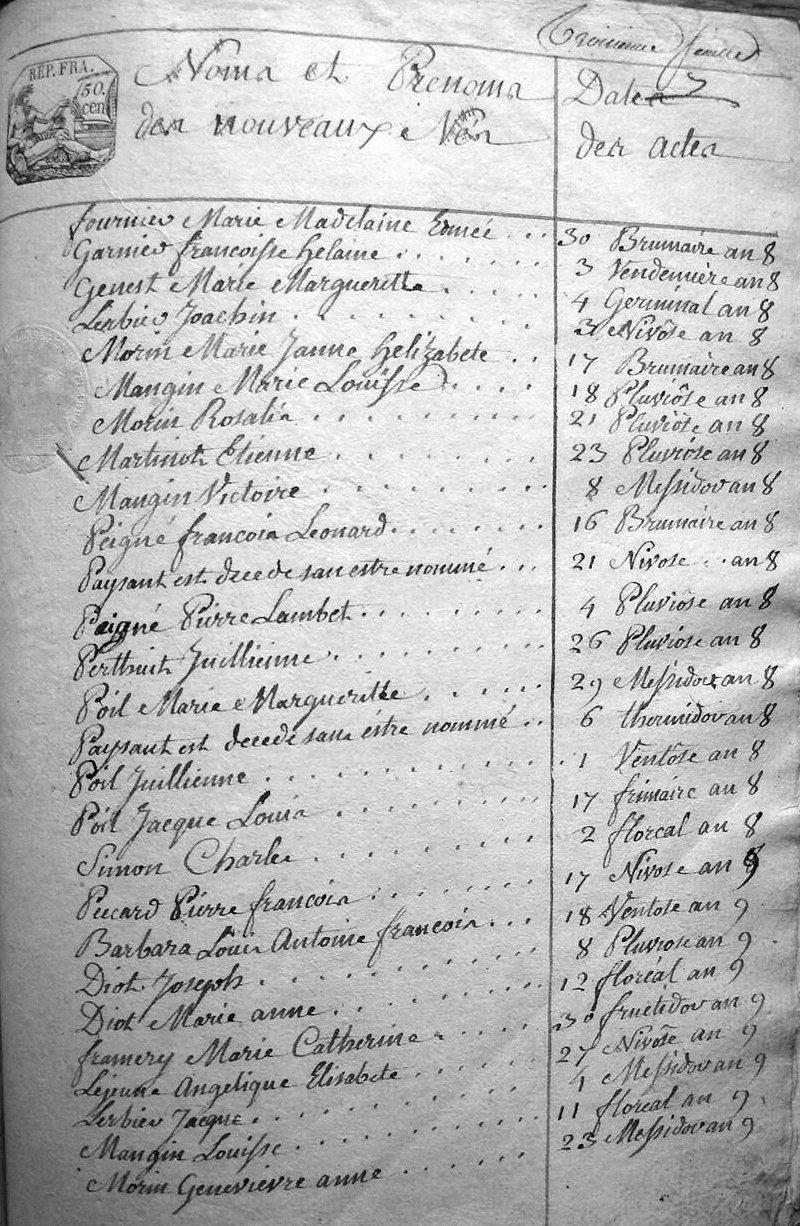 troisieme feuille
REP. FRA.
50.
cen
Noms et Prenoms
des nouveaux Nés
Dates
des actes
fournier Marie Madelaine Edmée ... 30 Brumaire an 8
Garnier francoisse helaine ....... 3 Vendemiere an 8
Genest Marie Margueritte ..... 4 Germinal an 8
Lerbier Joachin ......... 3 Nivôse an 8
Morin Marie Janne helizabete .. 17 Brumaire an 8
Mangin Marie Louisse .... 18 Pluviôse an 8
Morin Rosalia ........ 21 Pluviôse an 8
Martinot Etienne ....... 23 Pluviôse an 8
Mangin Victoire ....... 8 Messidor an 8
Peigné francois Leonard ...... 16 Brumaire an 8
Paysant est decede sans estre nommé ... 21 Nivose .. an 8
Peigné Pierre Lambet ....... 4 Pluviôse an 8
Perthuit Juillienne ........ 26 Pluviose an 8
Poil Marie Margueritte ..... 29 Messidor an 8
Paysant est decede sans estre nommé .. 6 thermidor an 8
Poil Juillienne .......... 1 Ventôse an 8
Poil Jacque Louis ....... 17 frimaire an 8
Simon Charles ........ 2 floreal an 8
Piccard Pierre francois ...... 17 Nivose an 9
Barbara Louis Antoine francois ... 18 Ventose an 9
Diot Joseph ......... 8 Pluviose an 9
Diot Marie anne ....... 12 floréal an 9
framery Marie Catherine .... 30 fructidor an 9
Lejeune Angelique Elisabete ..... 27 Nivôse an 9
Lerbier Jacque ......... 4 Messidor an 9
Mangin Louisse ........ 11 floreal an 9
Morin Genevievre anne ..... 23 Messidor an 9